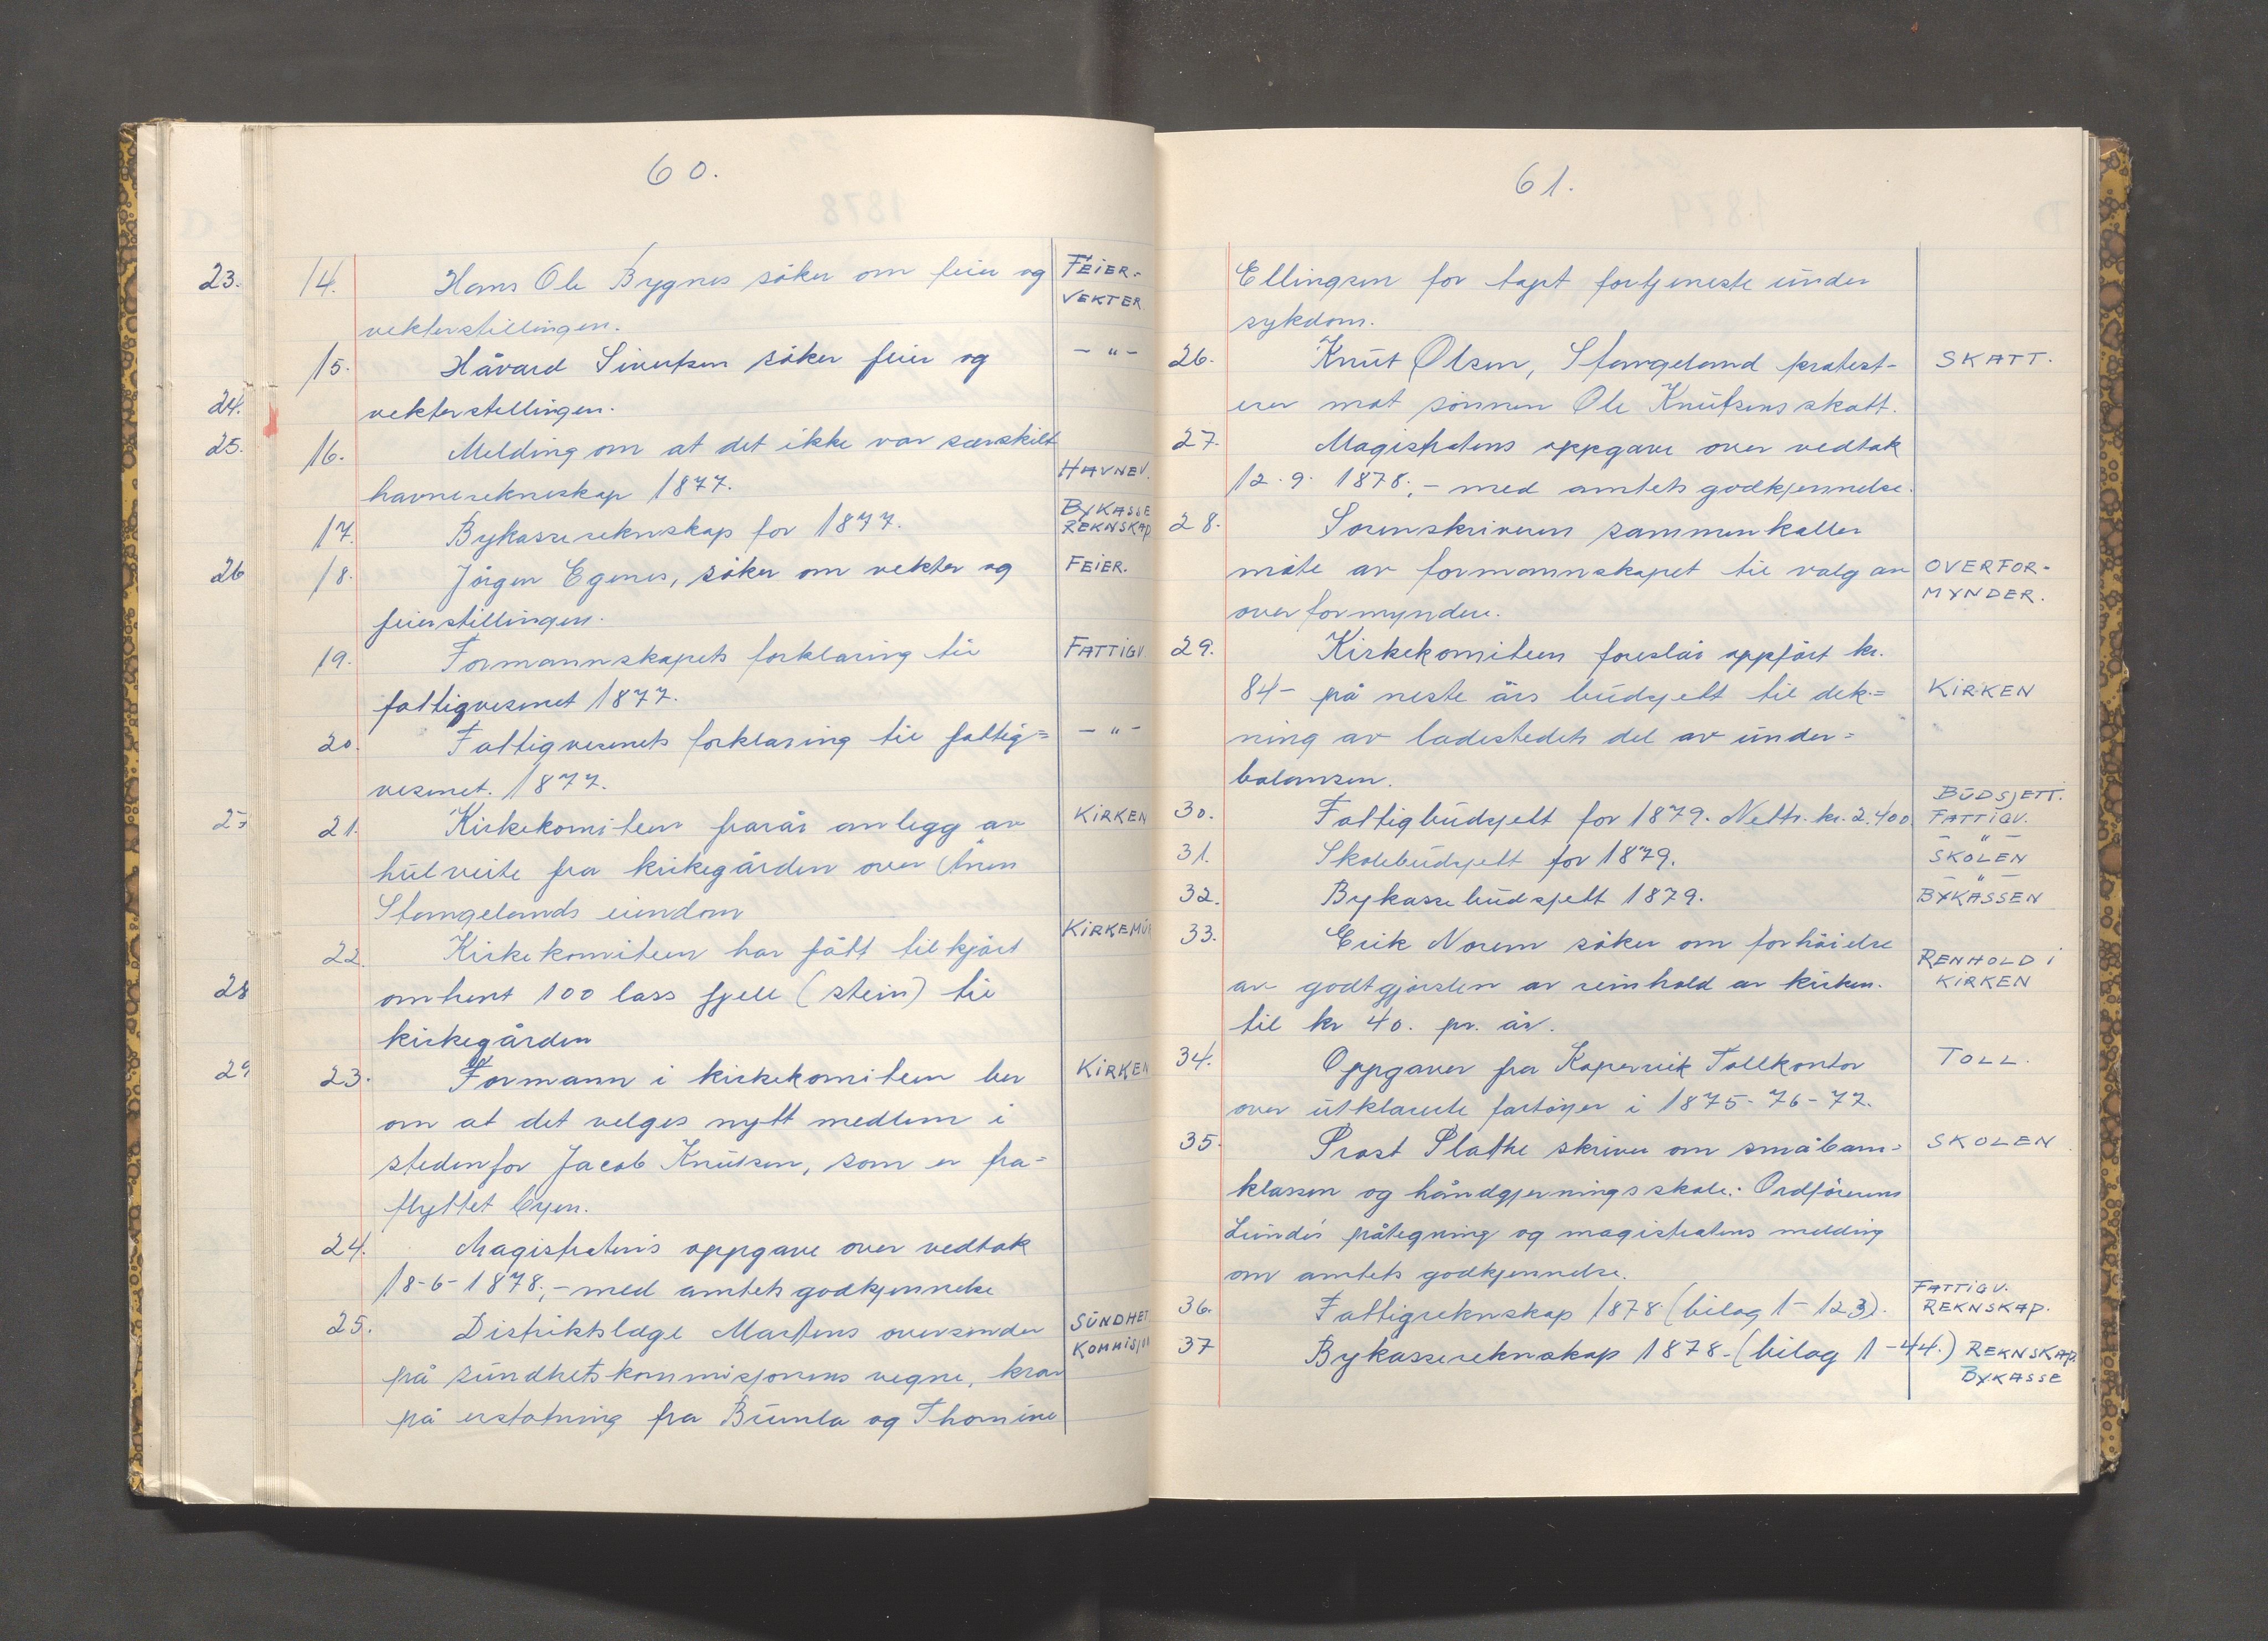 60.
23.
14. Hans Ole Bygnes søker om feier og FEIER-
vekterstillingen. VEKTER.
15. Håvard Sivertsen søker feier og - " -
24.
vekterstillingen.
25.
16. Melding om at det ikke var særskilt
havnerekneskap 1877. HAVNEV.
17. Bykasserekneskap for 1877. BYKASSE REKNSKAP
26
18. Jørgen Egenes, søker om vekter og FEIER.
feierstillingen.
19. Formannskapets forklaring til FATTIGV
fattigvesenet 1877.
20. Fattigvesenets forklaring til fattig= - " -
vesenet. 1877.
27
21. Kirkekomiteen frarår anlegg av KIRKEN
hulveite fra kirkegården over
Stangelands eiendom
22. Kirkekomiteen har fått tilkjørt KIRKEMUR
28
omtrent 100 lass fjell (stein) til
kirkegården
29
23. Formann i kirkekomiteen ber KIRKEN
om at det velges nytt medlem i
stedenfor Jacob Knutsen, som er fra=
flyttet byen.
24. Magistratens oppgave over vedtak
18-6-1878,- med amtets godkjennelse
25. Distriktslæge Martens oversender SUNDHET
på sundhetskommisjonens vegne, krav KOMMISJON
på erstatning fra Bumla og Thomine
61.
Ellingsen for tapt fortjeneste under
sykdom.
26. Knut Olsen, Stangeland protest- SKATT.
erer mot sønnen Ole Knutsens skatt.
27. Magistratens oppgave over vedtak
12.9. 1878,- med amtets godkjennelse.
28. Sorenskriveren sammenkaller
møte av formannskapet til valg av OVERFOR-
overformyndere. MYNDER.
29. Kirkekomiteen foreslår oppført kr.
84- på neste års budsjett til dek= KIRKEN
ning av ladestedets del av under=
balansen.
BUDSJETT.
30. Fattigbudsjett for 1879. Netto. kr. 2.400. FATTIGV.
- " -
31. Skolebudsjett for 1879. SKOLEN
- " -
32. Bykassebudsjett 1879. BYKASSEN
33. Erik Norem søker om forhøielse
av godtgjørslen av reinhold av kirken. RENHOLD I KIRKEN
til kr 40. pr. år.
34. Oppgaver fra Kopervik Tollkontor TOLL.
over utklarerte fartøyer i 1875-76-77.
35. Prost Plathe skriver om småbarn= SKOLEN
klassen og håndgjerningsskole. Ordførerens
Lunde's påtegning og magistratens melding
om amtets godkjennelse.
36. Fattigreknskap 1878. (bilag 1-123). FATTIGV. REKNSKAP.
37 Bykassereknskap 1878-(bilag 1-44.) REKNSKAP.
BYKASSE